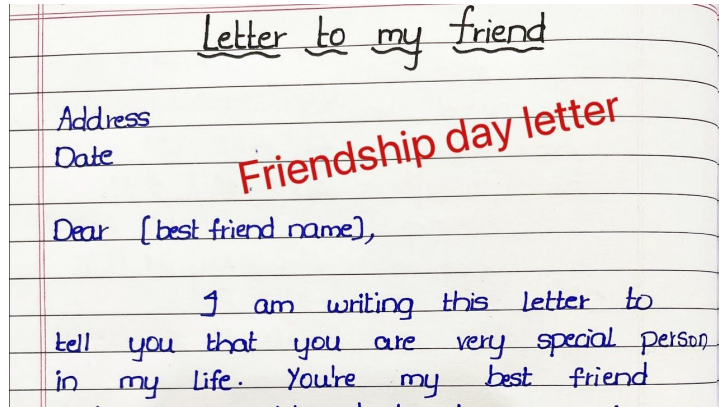 Letter to my friend
Address
Date
Friendship day letter
Dear [best friend name],
I am writing this letter to
tell you that you are very special person
in my life. You're my best friend